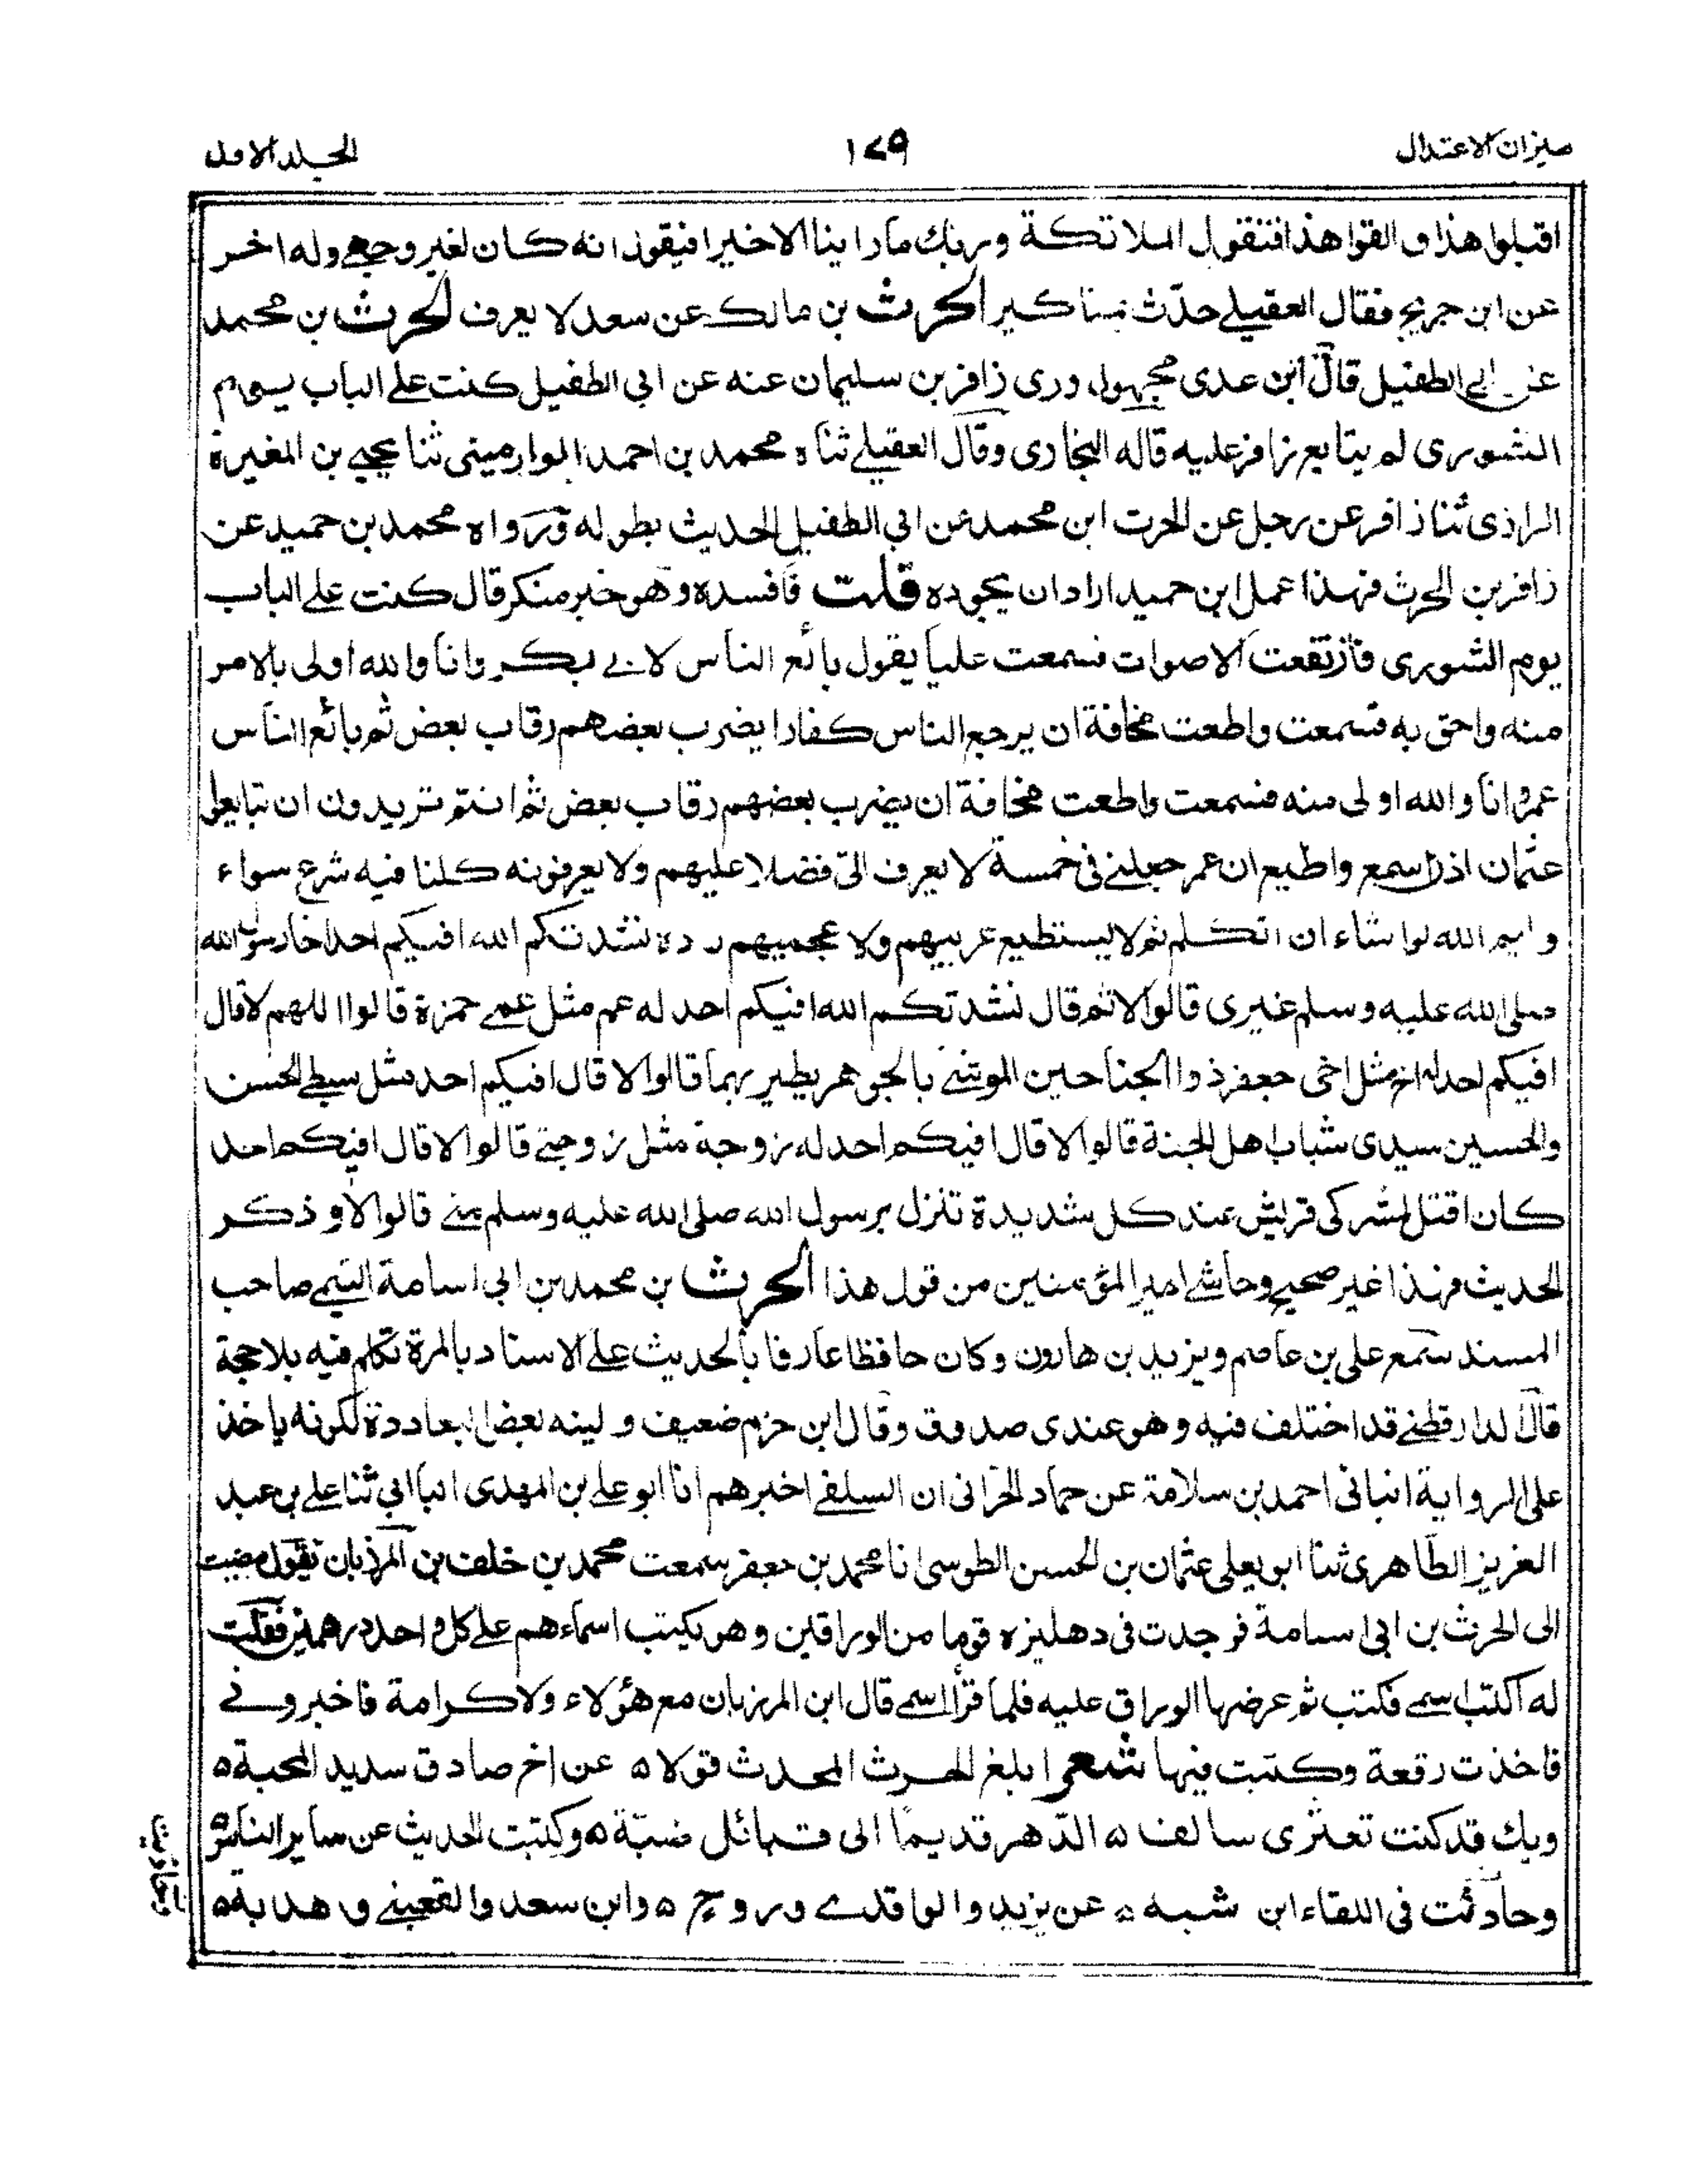 ميزان الاعتدال ١٧٩ الجلد الاول
اقبلوا هذا و القوا هذا فتقول الملائكة وربك ما راينا الا خيرا فيقول انه كان لغير وجهي وله اخر
عن ابن جريج فقال العقيلي حدّث بمناكير الحرث بن مالك عن سعد لا يعرف الحرث بن محمد
عن ابي الطفيل قال ابن عدى مجهول وروى زافر بن سليمان عنه عن ابي الطفيل كنت على الباب يوم
الشورى لم يتابع زافر عليه قاله البخارى وقال العقيلي ثناه محمد بن احمد الوراميني ثنا يحيى بن المغيرة
الرازى ثنا زافر عن رجل عن الحرث ابن محمد عن ابي الطفيل الحديث بطوله ورواه محمد بن حميد عن
زافر بن الحرث فهذا عمل ابن حميد اراد ان يجوده قلت فافسده وهو خبر منكر قال كنت على الباب
يوم الشورى فارتفعت الاصوات فسمعت عليا يقول بائع الناس لابي بكر وانا والله اولى بالامر
منه واحق به فسمعت واطعت مخافة ان يرجع الناس كفارا يضرب بعضهم رقاب بعض ثم بائع الناس
عمر وانا والله اولى منه فسمعت واطعت مخافة ان يضرب بعضهم رقاب بعض ثم انتم تريدون ان تبايعوا
عثمان اذن اسمع واطيع ان عمر جعلني في خمسة لا يعرف الى فضلا عليهم ولا يعرفونه كلنا فيه شرع سواء
وايم الله لو اشاء ان اتكلم ثم لا يستطيع عربيهم ولا عجميهم رده نشدتكم الله افيكم احد اخا رسول الله
صلى الله عليه وسلم غيرى قالوا لا ثم قال نشدتكم الله افيكم احد له عم مثل عمي حمزة قالوا اللهم لا قال
افيكم احد له اخ مثل اخى جعفر ذوا الجناحين الموشى بالجوهر يطير بهما قالوا لا قال افيكم احد مثل سبطي الحسن
والحسين سيدى شباب اهل الجنة قالوا لا قال افيكم احد له زوجة مثل زوجتي قالوا لا قال افيكم احد
كان اقتل لمشركى قريش عند كل شديدة تنزل برسول الله صلى الله عليه وسلم مني قالوا لا وذكر
الحديث فهذا غير صحيح وحاشى امير المؤمنين من قول هذا الحرث بن محمد بن ابي اسامة التيمي صاحب
المسند سمع على بن عاصم ويزيد بن هارون وكان حافظا عارفا بالحديث على الاسناد بالمرة تكلم فيه بلا حجة
قال لدارقطني قد اختلف فيه وهو عندى صدوق وقال ابن حزم ضعيف ولينه بعض البعاددة لكونه ياخذ
على الرواية انبانى احمد بن سلامة عن حماد الحرانى ان السلفي اخبرهم انا ابو على بن المهدى انبا ابي ثنا على بن عبد
العزيز الطاهرى ثنا ابو يعلى عثمان بن الحسن الطوسى انا محمد بن جعفر سمعت محمد بن خلف بن المرزبان يقول مضيت
الى الحرث بن ابي اسامة فوجدت في دهليزه قوما من الوراقين وهو يكتب اسماءهم على كل واحد درهمين فقلت
له اكتب اسمي فكتب ثم عرضها الوراق عليه فلما قرأ اسمي قال ابن المرزبان مع هؤلاء ولا كرامة فاخبروني
فاخذت رقعة وكتبت فيها شعرا ابلغ الحرث المحدث قولا ٥ عن اخ صادق سديد المحبة ٥
ويك قد كنت تعتزى سالف ٥ الدّهر قديما الى قبائل ضبّة ٥ وكتبت الحديث عن ساير الناس ٥
وحادثت في اللقاء ابن شبه ٥ عن يزيد والواقدي وروح ٥ وابن سعد والقعيني و هدبة ٥